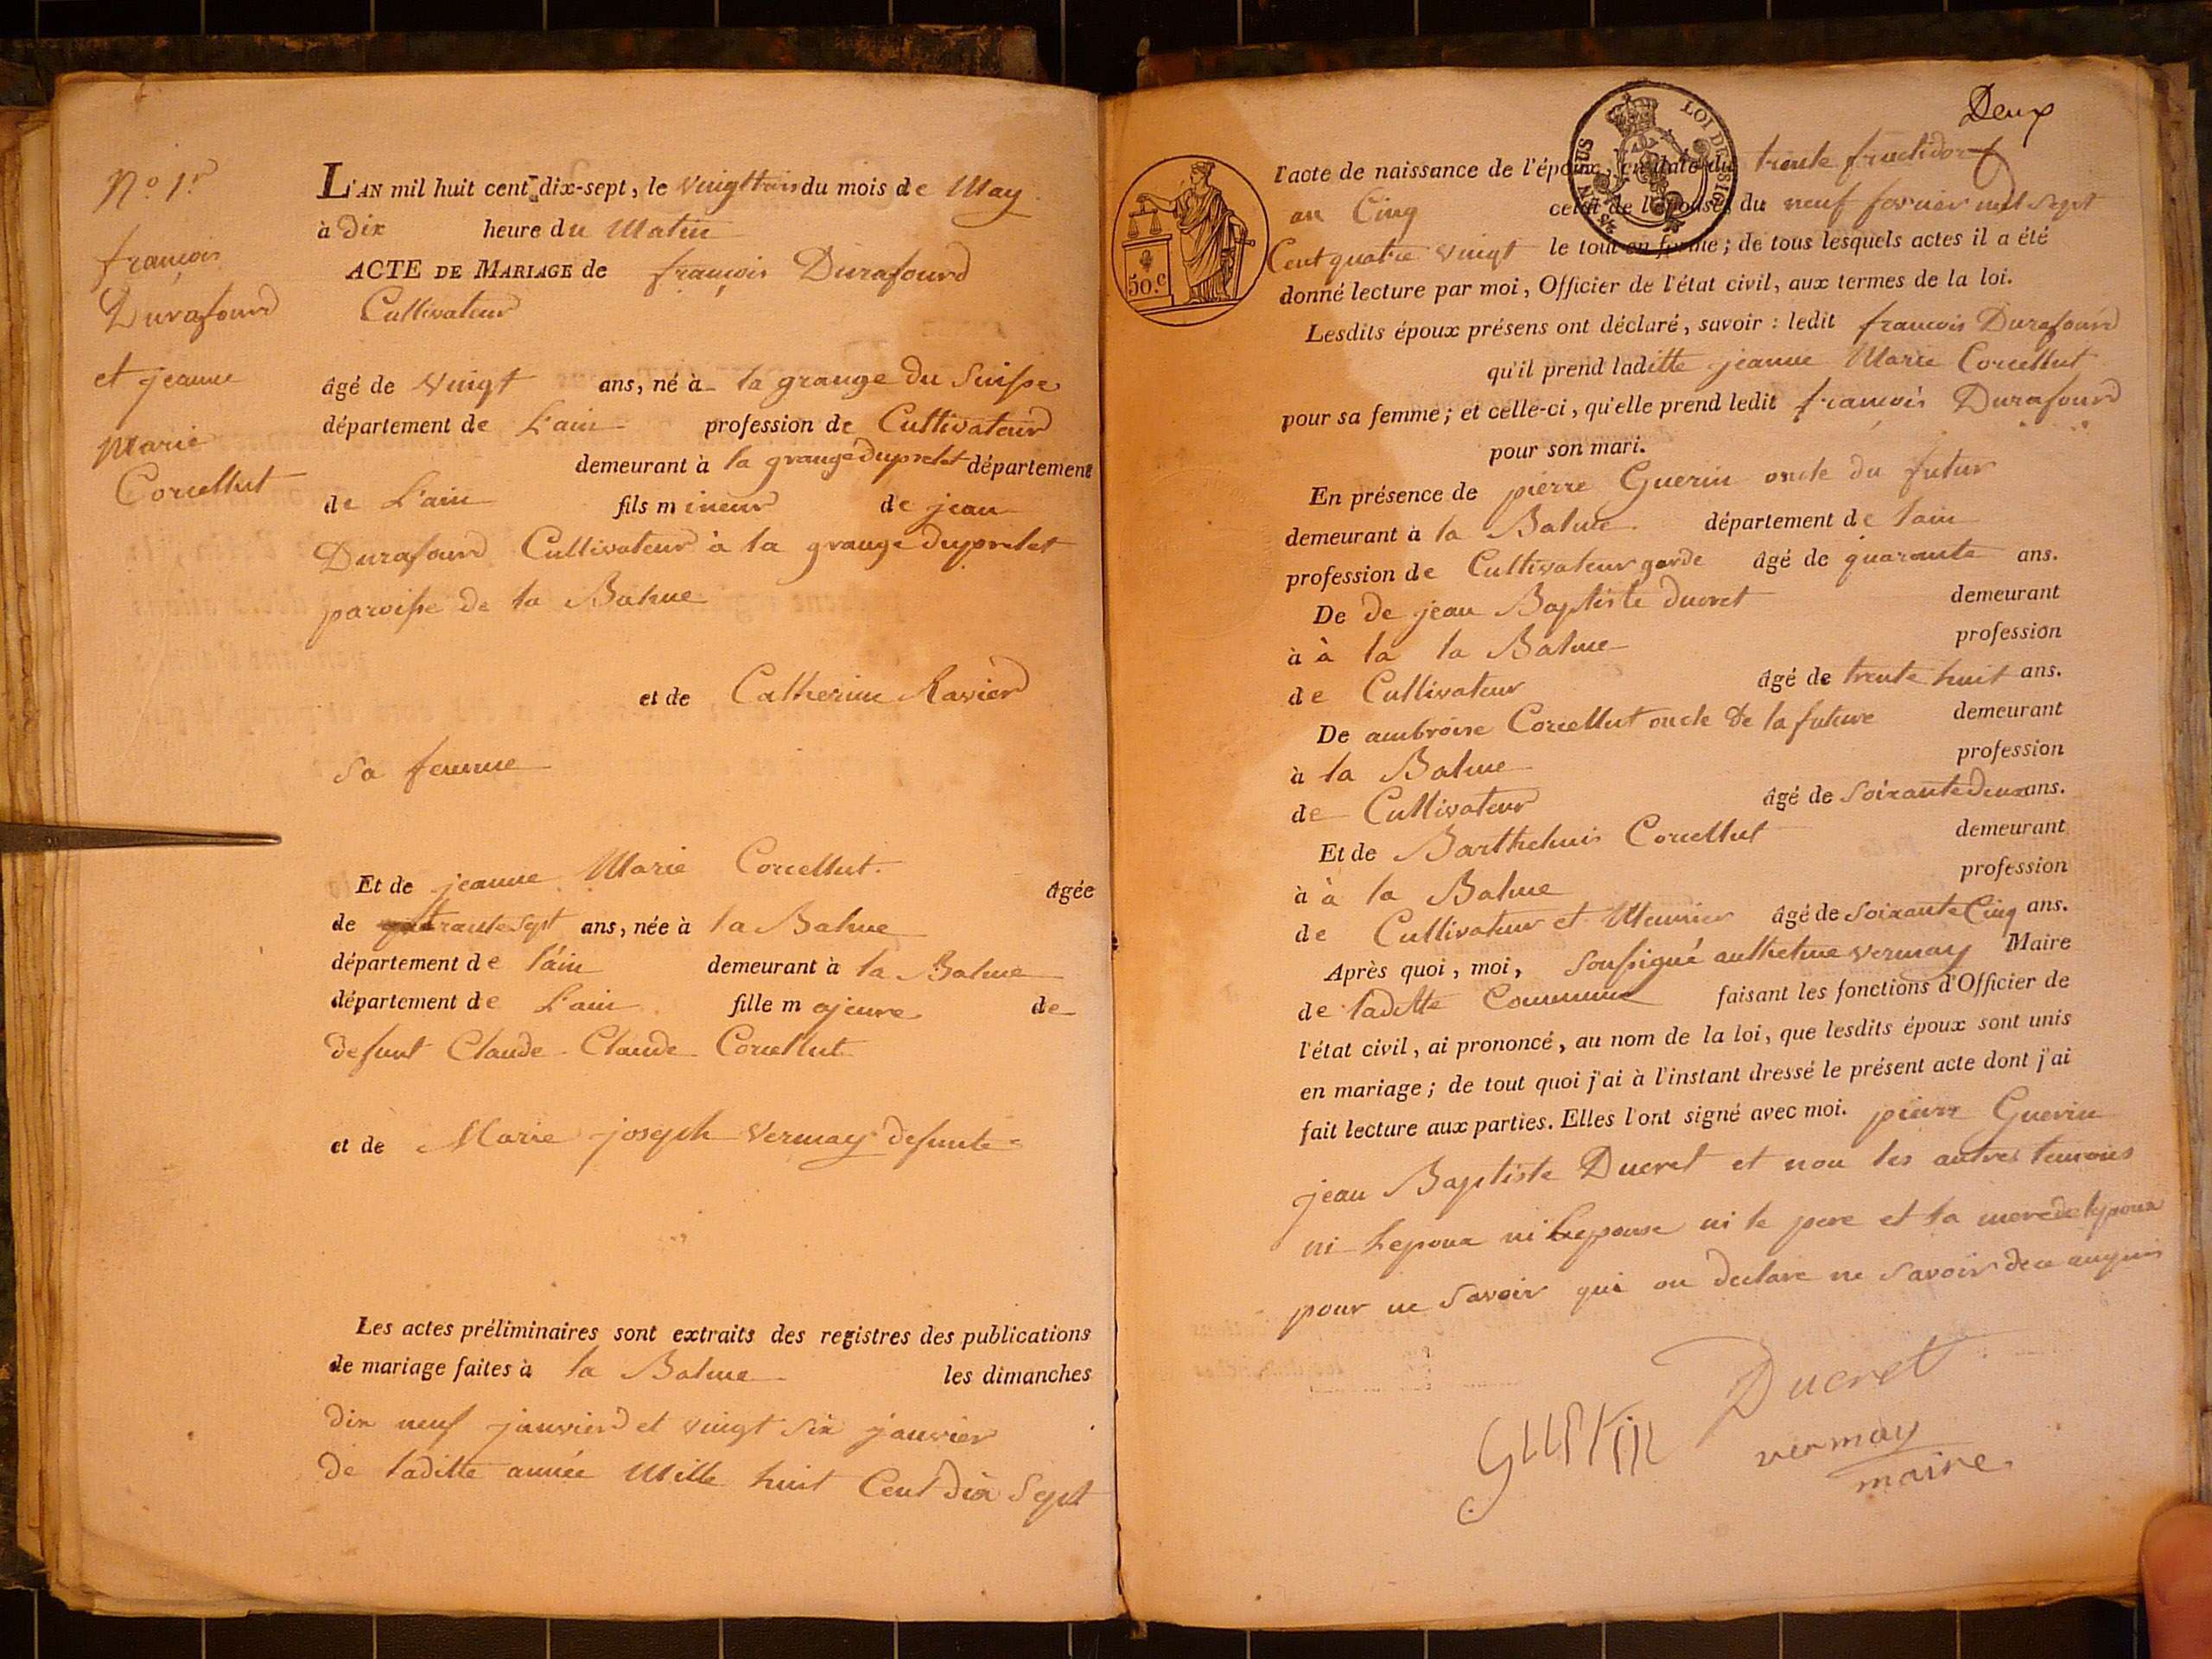 N.o 1.er
françois
Durafourd
et jeanne
Marie
Corcellut
L'AN mil huit cent dix-sept, le vingttrois du mois de May
à Dix heure du Matin
ACTE DE MARIAGE de françois Durafourd
Cultivateur
âgé de vingt ans, né à la grange du Suisse
département de L'ain profession de Cultivateur
demeurant à la grange duprelet département
de L'ain fils mineur de jean
Durafourd Cultivateur à la grange duprelet
paroisse de la Balme
et de Catherine Ravier
Sa femme
Et de jeanne Marie Corcellut. âgée
de trantesept ans, née à la Balme
département de l'ain demeurant à la Balme
département de L'ain fille majeure de
defunt Claude Claude Corcellut
et de Marie joseph Vermay defunte
Les actes préliminaires sont extraits des registres des publications
de mariage faites à la Balme les dimanches
dix neuf janvier et vingt six janvier
de laditte année Mille huit Cent dix Sept
Deux
LOI DE
50.c
l'acte de naissance de l'époux, en date du trente fructidor
an Cinq celui de l'épouse, du neuf fevrier mil sept
Cent quatre vingt le tout en forme; de tous lesquels actes il a été
donné lecture par moi, Officier de l'état civil, aux termes de la loi.
Lesdits époux présens ont déclaré, savoir : ledit francois Durafourd
qu'il prend laditte jeanne Marie Corcellut
pour sa femme; et celle-ci, qu'elle prend ledit françois Durafourd
pour son mari.
En présence de pierre Guerin oncle du futur
demeurant à la Balme département de lain
profession de Cultivateur garde âgé de quarante ans.
De de jean Baptiste ducret demeurant
à à la la Balme profession
de Cultivateur âgé de trente huit ans.
De ambroise Corcellut oncle de la future demeurant
à la Balme profession
de Cultivateur âgé de Soixantedeux ans.
Et de Barthelmis Corcellut demeurant
à à la Balme profession
de Cultivateur et Meunier âgé de Soixante Cinq ans.
Après quoi, moi, Soussigné anthelme vermay Maire
de laditte Commune faisant les fonctions d'Officier de
l'état civil, ai prononcé, au nom de la loi, que lesdits époux sont unis
en mariage; de tout quoi j'ai à l'instant dressé le présent acte dont j'ai
fait lecture aux parties. Elles l'ont signé avec moi. pierre Guerin
jean Baptiste Ducret et non les autres temoins
ni lepoux ni lepouse ni le pere et la mere de lepoux
pour ne Savoir qui on declare ne savoir de ce
Ducret
Guerin
vermay
maire